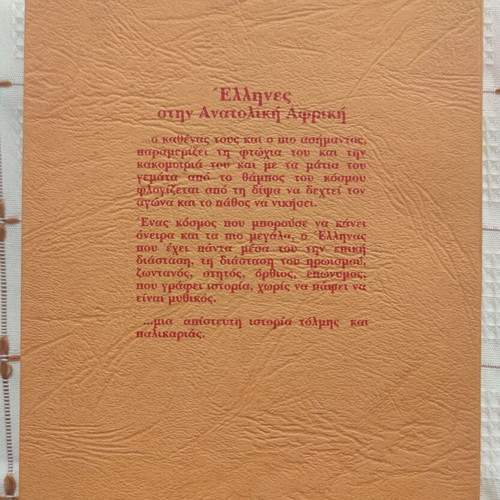 Έλληνες
στην Ανατολική Αφρική
...ο καθένας τους και ο πιο ασήμαντος,
παραμερίζει τη φτώχια του και την
κακομοιριά του και με τα μάτια του
γεμάτα από το θάμπος του κόσμου
φλογίζεται από τη δίψα να δεχτεί τον
αγώνα και το πάθος να νικήσει.
Ένας κόσμος που μπορούσε να κάνει
όνειρα και τα πιο μεγάλα, ο Έλληνας
που έχει πάντα μέσα του την επική
διάσταση, τη διάσταση του ηρωισμού,
ζωντανός, στητός, όρθιος, επώνυμος,
που γράφει ιστορία, χωρίς να πάψει να
είναι μυθικός.
...μια απίστευτη ιστορία τόλμης και
παλικαριάς.